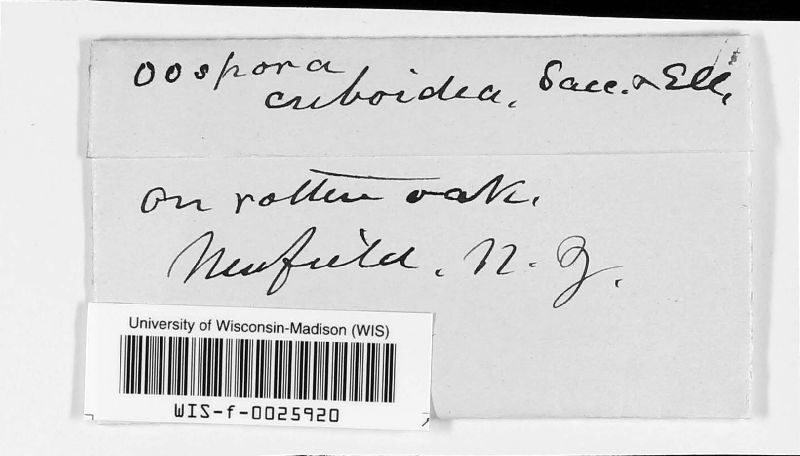 Oospora
cuboidea, Sacc. & Ell,
on rotten oak.
Newfield, N. J.
University of Wisconsin-Madison (WIS)
WIS-f-0025920